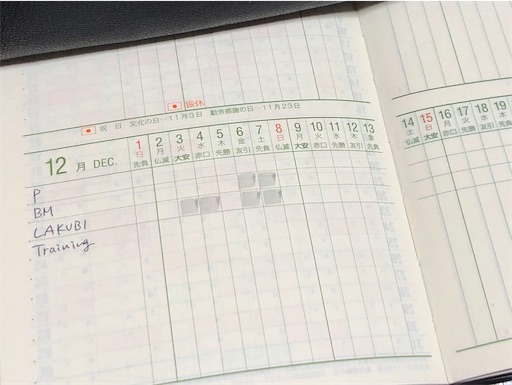 振休
祝 日 文化の日…11月3日 勤労感謝の日…11月23日
12 月 DEC.
1 2 3 4 5 6 7 8 9 10 11 12 13
日 月 火 水 木 金 土 日 月 火 水 木 金
先負 仏滅 大安 赤口 先勝 友引 先負 仏滅 大安 赤口 先勝 友引 先負
P
BM
LAKUBI
Training
14 15 16 17 18 19
土 日 月 火 水 木
仏滅 大安 赤口 先勝 友引 先負